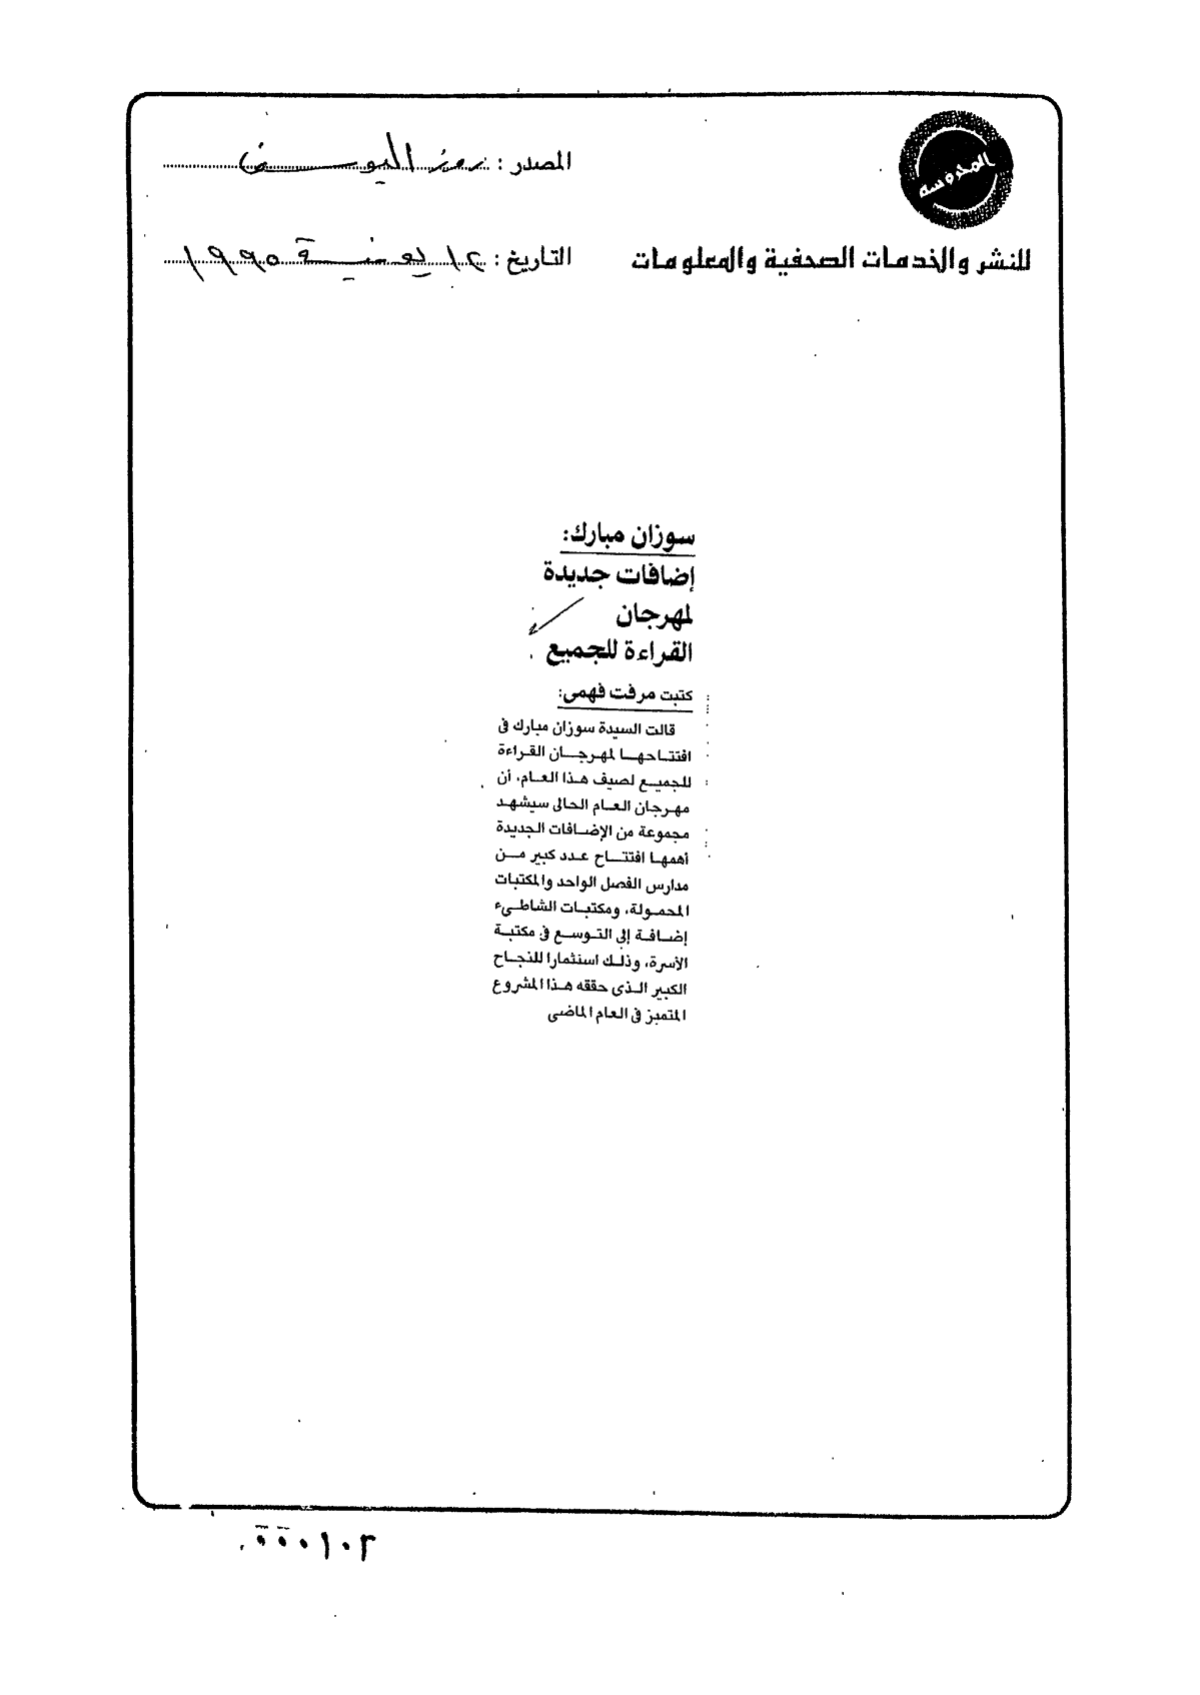 المحروسه
للنشر والخدمات الصحفية والمعلومات
المصدر : روز اليوسف
التاريخ : ١٢ يونية ١٩٩٥
سوزان مبارك:
إضافات جديدة
لمهرجان
القراءة للجميع
كتبت مرفت فهمى:
قالت السيدة سوزان مبارك فى
افتتاحها لمهرجان القراءة
للجميع لصيف هذا العام، أن
مهرجان العام الحالى سيشهد
مجموعة من الإضافات الجديدة
أهمها افتتاح عدد كبير من
مدارس الفصل الواحد والمكتبات
المحمولة، ومكتبات الشاطىء
إضافة إلى التوسع فى مكتبة
الأسرة، وذلك استثمارا للنجاح
الكبير الذى حققه هذا المشروع
المتميز فى العام الماضى